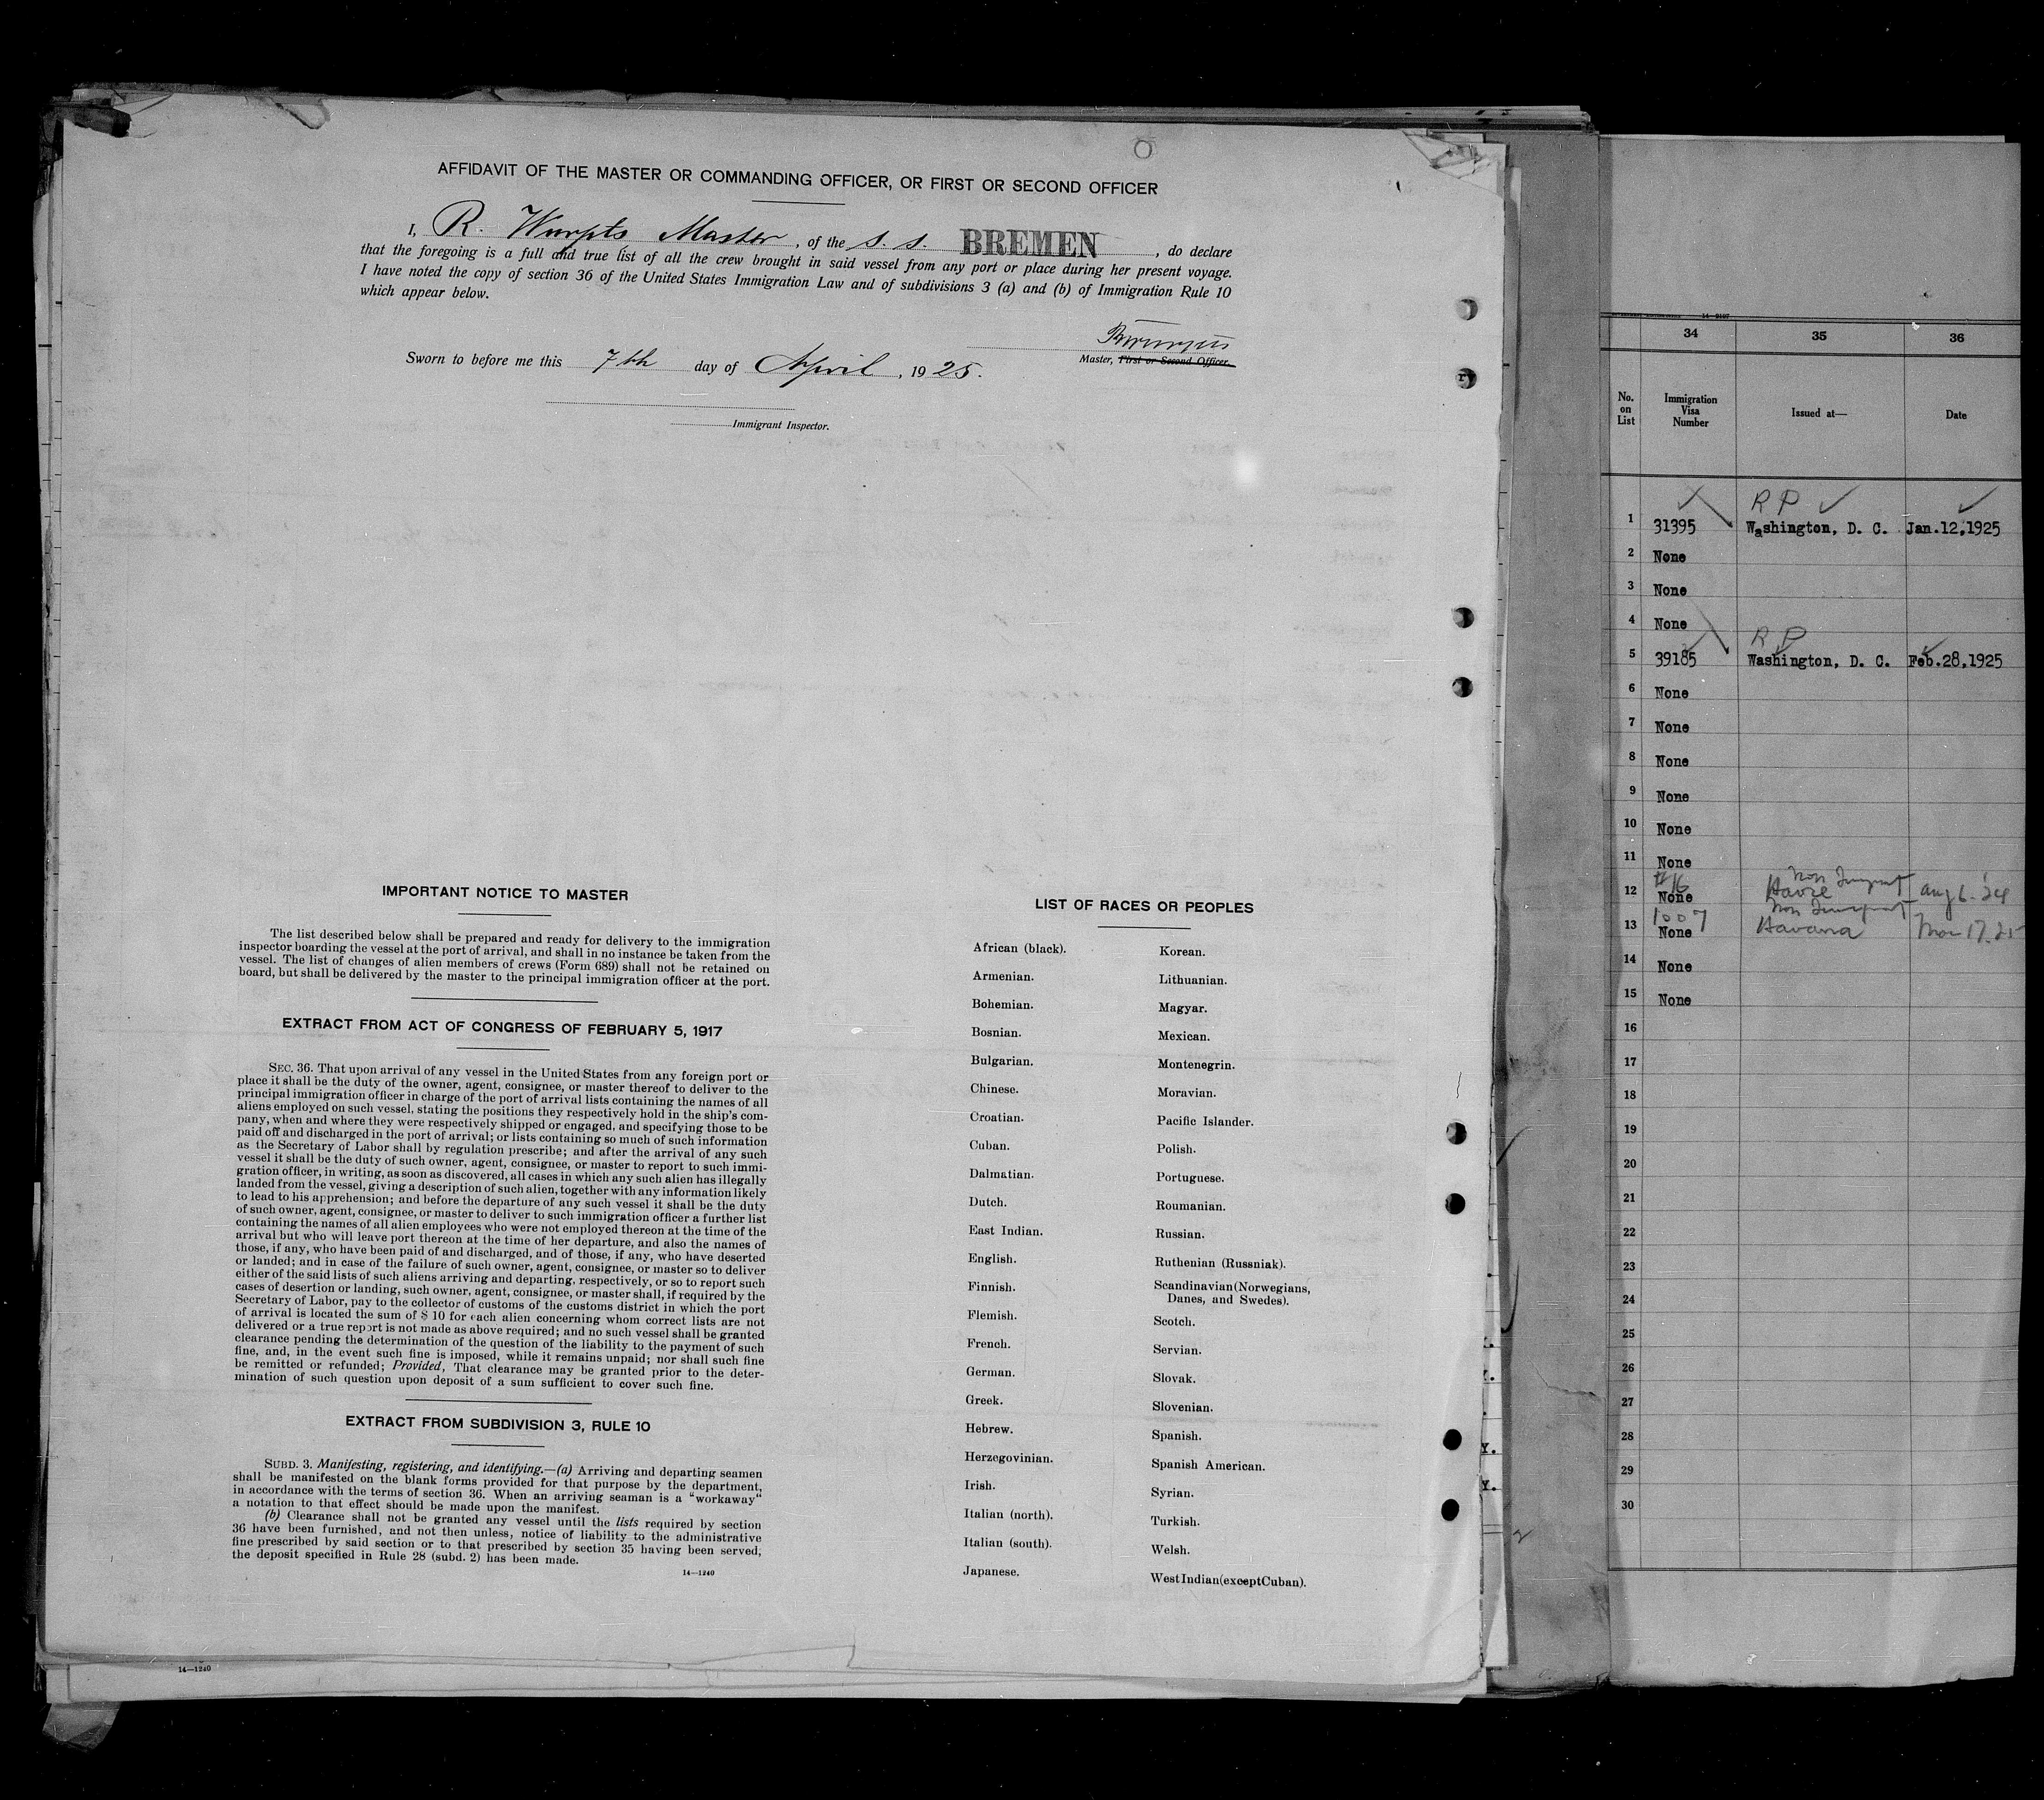 AFFIDAVIT OF THE MASTER OR COMMANDING OFFICER, OR FIRST OR SECOND OFFICER
I, R. Wurpts Master, of the S. S. BREMEN, do declare
that the foregoing is a full and true list of all the crew brought in said vessel from any port or place during her present voyage.
I have noted the copy of section 36 of the United States Immigration Law and of subdivisions 3 (a) and (b) of Immigration Rule 10
which appear below.
Master, First or Second Officer.
Sworn to before me this 7th day of April, 1925.
Immigrant Inspector.
IMPORTANT NOTICE TO MASTER
The list described below shall be prepared and ready for delivery to the immigration
inspector boarding the vessel at the port of arrival, and shall in no instance be taken from the
vessel. The list of changes of alien members of crews (Form 689) shall not be retained on
board, but shall be delivered by the master to the principal immigration officer at the port.
EXTRACT FROM ACT OF CONGRESS OF FEBRUARY 5, 1917
SEC. 36. That upon arrival of any vessel in the United States from any foreign port or
place it shall be the duty of the owner, agent, consignee, or master thereof to deliver to the
principal immigration officer in charge of the port of arrival lists containing the names of all
aliens employed on such vessel, stating the positions they respectively hold in the ship's com-
pany, when and where they were respectively shipped or engaged, and specifying those to be
paid off and discharged in the port of arrival; or lists containing so much of such information
as the Secretary of Labor shall by regulation prescribe; and after the arrival of any such
vessel it shall be the duty of such owner, agent, consignee, or master to report to such immi-
gration officer, in writing, as soon as discovered, all cases in which any such alien has illegally
landed from the vessel, giving a description of such alien, together with any information likely
to lead to his apprehension; and before the departure of any such vessel it shall be the duty
of such owner, agent, consignee, or master to deliver to such immigration officer a further list
containing the names of all alien employees who were not employed thereon at the time of the
arrival but who will leave port thereon at the time of her departure, and also the names of
those, if any, who have been paid of and discharged, and of those, if any, who have deserted
or landed; and in case of the failure of such owner, agent, consignee, or master so to deliver
either of the said lists of such aliens arriving and departing, respectively, or so to report such
cases of desertion or landing, such owner, agent, consignee, or master shall, if required by the
Secretary of Labor, pay to the collector of customs of the customs district in which the port
of arrival is located the sum of $ 10 for each alien concerning whom correct lists are not
delivered or a true report is not made as above required; and no such vessel shall be granted
clearance pending the determination of the question of the liability to the payment of such
fine, and, in the event such fine is imposed, while it remains unpaid; nor shall such fine
be remitted or refunded; Provided, That clearance may be granted prior to the deter-
mination of such question upon deposit of a sum sufficient to cover such fine.
EXTRACT FROM SUBDIVISION 3, RULE 10
SUBD. 3. Manifesting, registering, and identifying.—(a) Arriving and departing seamen
shall be manifested on the blank forms provided for that purpose by the department,
in accordance with the terms of section 36. When an arriving seaman is a "workaway"
a notation to that effect should be made upon the manifest.
(b) Clearance shall not be granted any vessel until the lists required by section
36 have been furnished, and not then unless, notice of liability to the administrative
fine prescribed by said section or to that prescribed by section 35 having been served,
the deposit specified in Rule 28 (subd. 2) has been made.
14—1240
14—1240
LIST OF RACES OR PEOPLES
African (black).
Armenian.
Bohemian.
Bosnian.
Bulgarian.
Chinese.
Croatian.
Cuban.
Dalmatian.
Dutch.
East Indian.
English.
Finnish.
Flemish.
French.
German.
Greek.
Hebrew.
Herzegovinian.
Irish.
Italian (north).
Italian (south).
Japanese.
Korean.
Lithuanian.
Magyar.
Mexican.
Montenegrin.
Moravian.
Pacific Islander.
Polish.
Portuguese.
Roumanian.
Russian.
Ruthenian (Russniak).
Scandinavian (Norwegians,
Danes, and Swedes).
Scotch.
Servian.
Slovak.
Slovenian.
Spanish.
Spanish American.
Syrian.
Turkish.
Welsh.
West Indian (except Cuban).
34 35 36
No. on List Immigration Visa Number Issued at— Date
R P
1 31395 Washington, D. C. Jan.12,1925
2 None
3 None
4 None
R P
5 39185 Washington, D. C. Feb.28,1925
6 None
7 None
8 None
9 None
10 None
11 None
#16 Non
12 None Havre Aug 6. '24
1007 Non
13 None Havana 17. 25
14 None
15 None
16
17
18
19
20
21
22
23
24
25
26
27
28
29
30